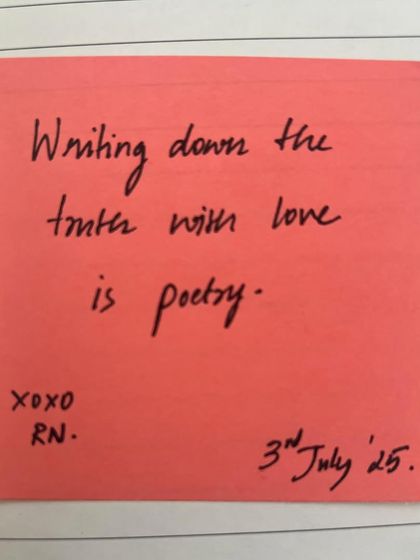 Writing down the
truth with love
is poetry.
XOXO
RN.
3RD July '25.